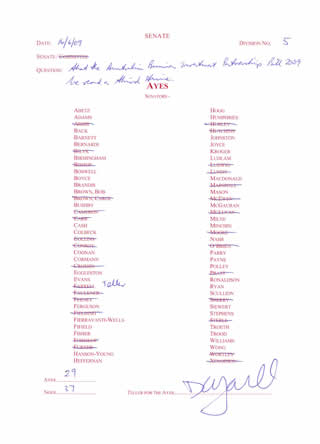 SENATE
DATE: 16/6/09 DIVISION NO. 5
SENATE / COMMITTEE
QUESTION: That the Australian Business Investment Partnership Bill 2009
be read a third time
AYES
SENATORS—
ABETZ
ADAMS
ARBIB
BACK
BARNETT
BERNARDI
BILYK
BIRMINGHAM
BISHOP
BOSWELL
BOYCE
BRANDIS
BROWN, BOB
BROWN, CAROL
BUSHBY
CAMERON
CARR
CASH
COLBECK
COLLINS
CONROY
COONAN
CORMANN
CROSSIN
EGGLESTON
EVANS
FARRELL Teller
FAULKNER
FEENEY
FERGUSON
FIELDING
FIERRAVANTI-WELLS
FIFIELD
FISHER
FORSHAW
FURNER
HANSON-YOUNG
HEFFERNAN
HOGG
HUMPHRIES
HURLEY
HUTCHINS
JOHNSTON
JOYCE
KROGER
LUDLAM
LUDWIG
LUNDY
MACDONALD
MARSHALL
MASON
MCEWEN
MCGAURAN
MCLUCAS
MILNE
MINCHIN
MOORE
NASH
O'BRIEN
PARRY
PAYNE
POLLEY
PRATT
RONALDSON
RYAN
SCULLION
SHERRY
SIEWERT
STEPHENS
STERLE
TROETH
TROOD
WILLIAMS
WONG
WORTLEY
XENOPHON
AYES 29
NOES 37 TELLER FOR THE AYES